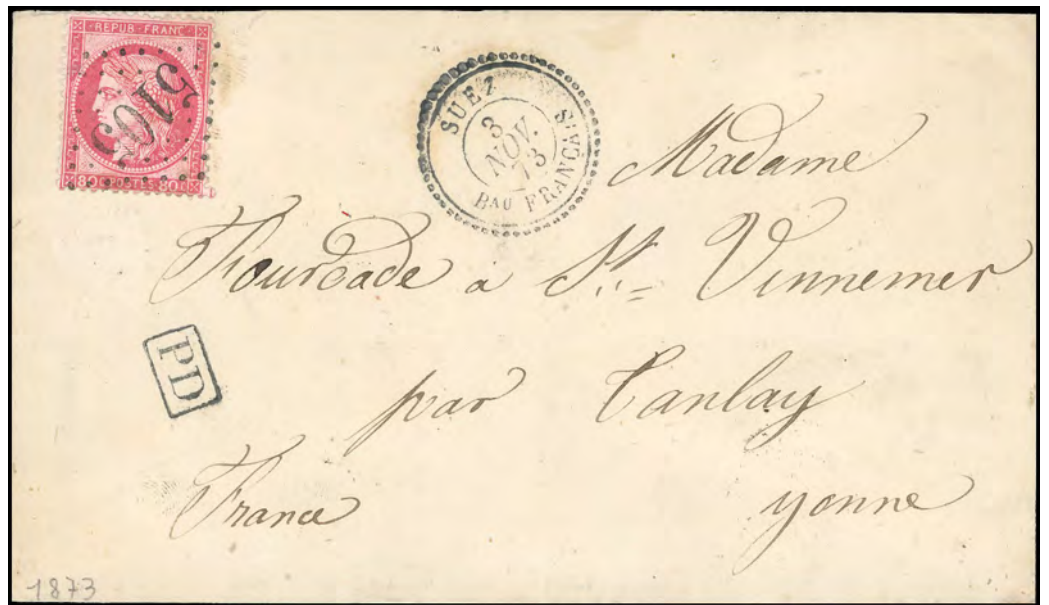 REPUB · FRANC
5105
80 POSTES 80
SUEZ
3
NOV.
73
BAU FRANÇAIS
Madame
Fourcade à St Vinnemer
PD
par Tanlay
France yonne
1873